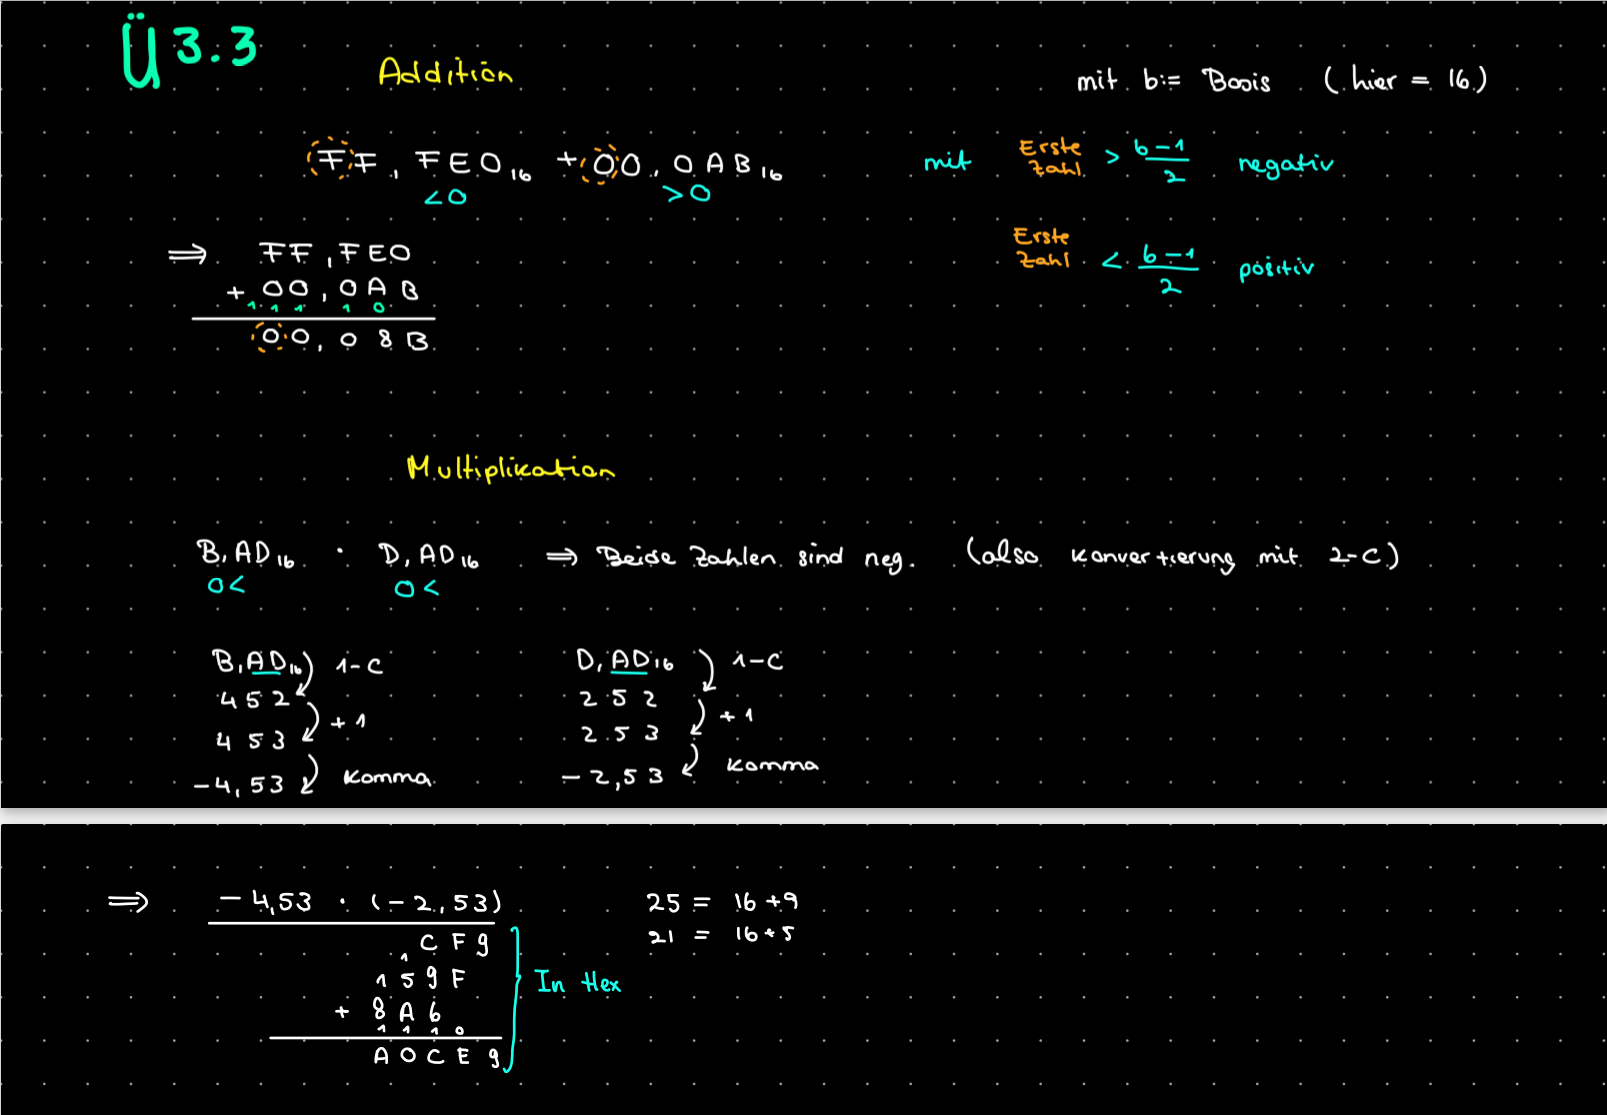 Ü 3.3
Addition
mit b:= Basis (hier = 16)
FF,FE0₁₆ + 00,0AB₁₆
<0 >0
mit Erste Zahl > b-1/2 negativ
Erste Zahl < b-1/2 positiv
⇒ FF,FE0
+ 00,0AB
1 1 1 1 0
00,08B
Multiplikation
B,AD₁₆ · D,AD₁₆ ⇒ Beide Zahlen sind neg. (also Konvertierung mit 2-C)
0< 0<
B,AD₁₆ 1-C
452
+1
453
-4,53 Komma
D,AD₁₆ 1-C
252
+1
253
-2,53 Komma
⇒ -4,53 · (-2,53)
CF9
1
159F
+ 8A6
1 1 1 0
A0CE9
In Hex
25 = 16+9
21 = 16+5